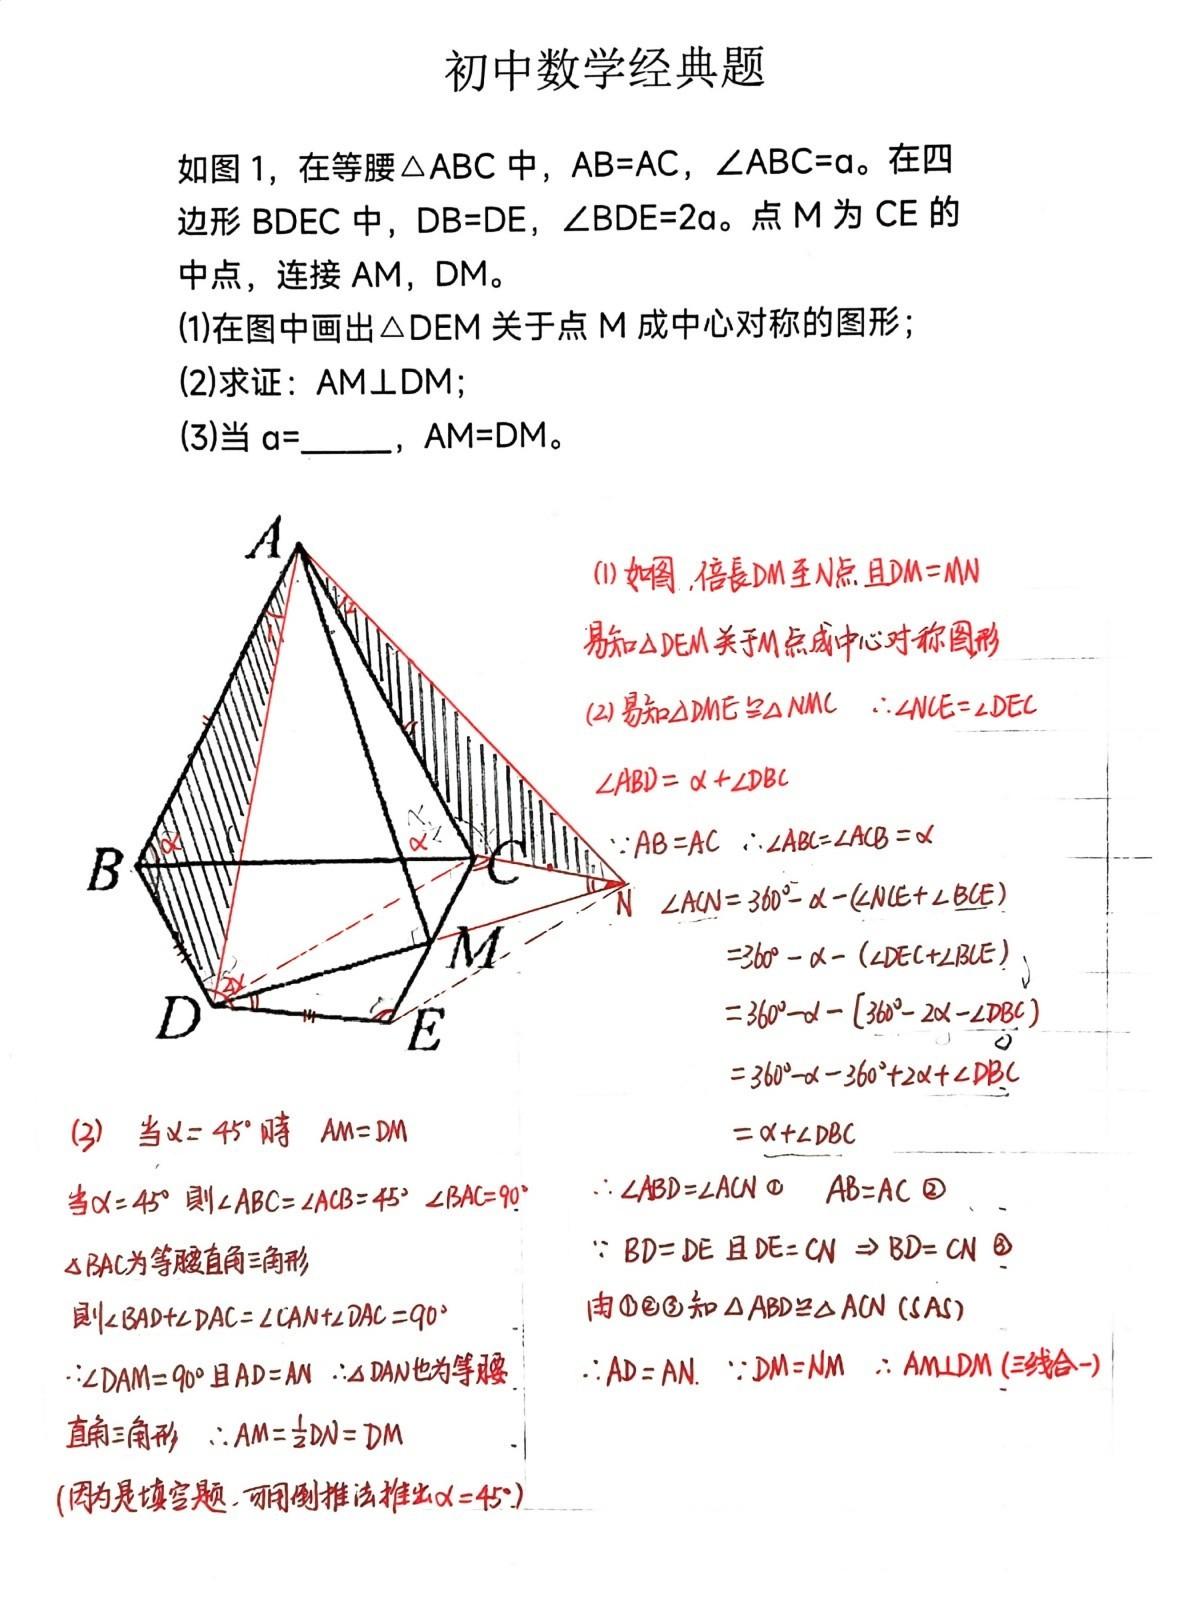 初中数学经典题
如图 1，在等腰△ABC 中，AB=AC，∠ABC=a。在四
边形 BDEC 中，DB=DE，∠BDE=2a。点 M 为 CE 的
中点，连接 AM，DM。
(1)在图中画出△DEM 关于点 M 成中心对称的图形；
(2)求证：AM⊥DM；
(3)当 a=______，AM=DM。
A
B
α
α
C
N
M
D
2α
E
(1) 如图,倍長DM至N点且DM=MN
易知△DEM关于M点成中心对称图形
(2) 易知△DME≌△NMC ∴∠NCE=∠DEC
∠ABD= α+∠DBC
∵AB=AC ∴∠ABC=∠ACB=α
∠ACN=360°-α-(∠NCE+∠BCE)
=360°-α-(∠DEC+∠BCE)
=360°-α-[360°-2α-∠DBC)
=360°-α-360°+2α+∠DBC
=α+∠DBC
∴∠ABD=∠ACN① AB=AC②
∵ BD=DE且DE=CN ⇒ BD=CN ③
由①②③知△ABD≌△ACN (SAS)
∴AD=AN. ∵DM=NM ∴ AM⊥DM(三线合一)
(3) 当α=45°時 AM=DM
当α=45° 则∠ABC=∠ACB=45° ∠BAC=90°
△BAC为等腰直角三角形
则∠BAD+∠DAC=∠CAN+∠DAC=90°
∴∠DAM=90°且AD=AN ∴△DAN也为等腰
直角三角形 ∴AM=½DN=DM
(因为是填空题,可用倒推法推出α=45°)